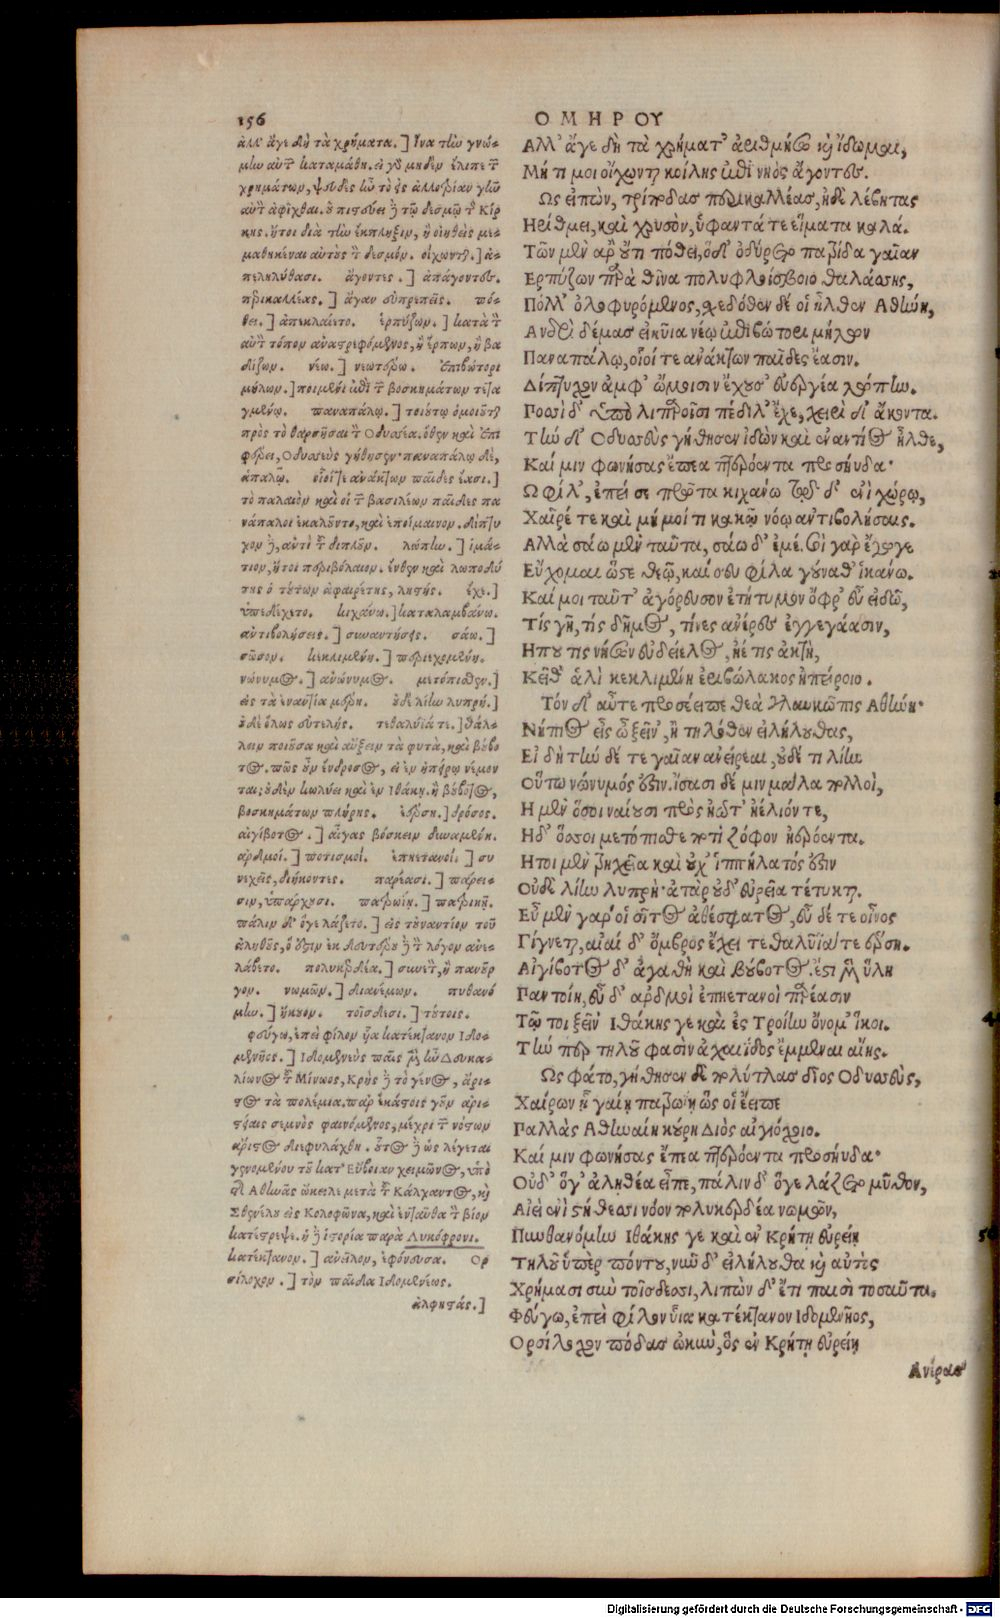 156
ΟΜΗΡΟΥ
ἀλλ' ἄγε δὴ τὰ χρήματα.] ἵνα τὴν γνώ-
μην αὐτῶν καταμάθῃ. εἰ γὰρ μηδὲν ἔλιπε τῶν
χρημάτων, ψευδὲς ἦν τὸ ἐς ἀλλοτρίαν γῆν
αὐτὸν ἀφῖχθαι. οὐ πιστεύει δὲ τῷ δεσμῷ τῆς Κίρ
κης. ἤτοι διὰ τὴν ἔκπληξιν, ἢ οἰηθεὶς με-
μαθηκέναι αὐτοὺς τὸν δεσμόν. οἴχωνται.] ἀ-
πεληλύθασι. ἄγοντες.] ἀπάγοντες.
περικαλλέας.] ἄγαν εὐπρεπεῖς. πό-
θει.] ἀπεκλαίετο. ἑρπύζων.] κατὰ τὸν
αὐτὸν τόπον ἀναστρεφόμενος, ἢ ἕρπων, ἢ βα
δίζων. νέῳ.] νεωτέρῳ. ἐπιβώτορι
μήλων.] ποιμένι ἐπὶ τῶν βοσκημάτων τεταγ
γμένῳ. παναπάλῳ.] τοιούτῳ ὁμοιοῦται
πρὸς τὸ θαρσῆσαι τὸν Ὀδυσσέα. ὅθεν καὶ ἐπι
φέρει, Ὀδυσσεὺς γήθησεν· παναπάλῳ δὲ,
ἁπαλῷ. οἷοί τε ἀνάκτων παῖδες ἔασι.]
τὸ παλαιὸν καὶ οἱ τῶν βασιλέων παῖδες πα
νάπαλοι ἐκαλοῦντο, καὶ ἐποίμαινον. δίπτυ
χον δὲ, ἀντὶ τοῦ διπλῆν. λώπην.] ἱμά-
τιον, ἤτοι περιβόλαιον. ἔνθεν καὶ λωποδύ
της ὁ τούτων ἀφαιρέτης, λῃστής. ἔχε.]
ὑπεδέχετο. κιχάνω.] καταλαμβάνω.
ἀντιβολήσεις.] συναντήσῃς. σάω.]
σῶσον. κεκλιμένη.] περιεχομένη.
νώνυμος.] ἀνώνυμος. μετόπισθεν.]
εἰς τὰ ἐναντία μέρη. οὐδὲ λίην λυπρή.]
οὐδὲ ὅλως εὐτελής. τεθαλυῖά τε.] θάλ-
λειν ποιοῦσα καὶ αὔξειν τὰ φυτὰ, καὶ βούβο
τος. πῶς οὖν ἔνδροσος, εἰ ἐν ἠπείρῳ νέμον
ται; οὐδὲν κωλύει καὶ ἐν Ἰθάκῃ. ἢ βούβοτος,
βοσκημάτων πλήρης. ἐέρση.] δρόσος.
αἰγίβοτος.] αἶγας βόσκειν δυναμένη.
ἀρδμοί.] ποτισμοί. ἐπηετανοί.] συ
νεχεῖς, διήκοντες. παρέασι.] πάρει-
σιν, ὑπάρχουσι. πατρωΐῃ.] πατρικῇ.
πάλιν δ' ὅγε λάζετο.] εἰς τοὐναντίον τοῦ
ἀληθοῦς, ὅ ἐστιν ἐκ δευτέρου δὲ τὸν λόγον ἀνε-
λάβετο. πολυκερδέα.] συνετὸν, ἢ πανοῦρ
γον. νωμῶν.] διανέμων. πυθανό
μην.] ἤκουον. τοῖσδεσι.] τούτοις.
φεύγω, ἐπεὶ φίλον ὗα κατέκτανον Ἰδο-
μενῆος.] Ἰδομενεὺς παῖς μὲν ἦν Δευκα-
λίωνος τοῦ Μίνωος, Κρὴς δὲ τὸ γένος, ἄρι-
στος τὰ πολέμια. παρ' ἑκάστοις γοῦν ἀρι-
στεῦσι σεμνὸς φαινόμενος, μέχρι τῶν νόστων
ἄριστος διεφυλάχθη. οὗτος δὲ ὡς λέγεται
γενομένου τοῦ κατ' Εὔβοιαν χειμῶνος, ὑπὸ
τῆς Ἀθηνᾶς ὤκειλε μετὰ τοῦ Κάλχαντος, καὶ
Σθενέλου εἰς Κολοφῶνα, καὶ ἐνταῦθα τὸν βίον
κατέστρεψε. ἡ δὲ ἱστορία παρὰ Λυκόφρονι.
κατέκτανον.] ἀνεῖλον, ἐφόνευσα. Ὀρ
σίλοχον.] τὸν παῖδα Ἰδομενέως.
ἀλφηστάς.]
Αλλ' ἄγε δὴ τὰ χρήματ' ἀριθμήσω καὶ ἴδωμαι,
Μή τί μοι οἴχωνται κοίλης ἐπὶ νηὸς ἄγοντες.
Ως εἰπὼν, τρίποδας περικαλλέας, ἠδὲ λέβητας
Ηρίθμει, καὶ χρυσὸν, ὑφαντά τε εἵματα καλά.
Τῶν μὲν ἄρ' οὔτι πόθει, ὅδ' ὀδύρετο πατρίδα γαῖαν
Ερπύζων παρὰ θῖνα πολυφλοίσβοιο θαλάσσης,
Πόλλ' ὀλοφυρόμενος, σχεδόθεν δέ οἱ ἦλθεν Αθήνη,
Ανδρὶ δέμας εἰκυῖα νέῳ ἐπιβώτορι μήλων
Παναπάλῳ, οἷοί τε ἀνάκτων παῖδες ἔασιν.
Δίπτυχον ἀμφ' ὤμοισιν ἔχουσ' εὐεργέα λώπην.
Ποσσὶ δ' ὑπὸ λιπαροῖσι πέδιλ' ἔχε, χειρὶ δ' ἄκοντα.
Τὴν δ' Οδυσσεὺς γήθησεν ἰδὼν καὶ ἐναντίος ἦλθε,
Καί μιν φωνήσας ἔπεα πτερόεντα προσηύδα·
Ω φίλ', ἐπεί σε πρῶτα κιχάνω τῷδ' ἐνὶ χώρῳ,
Χαῖρέ τε καὶ μή μοί τι κακῷ νόῳ ἀντιβολήσαις.
Αλλὰ σάω μὲν ταῦτα, σάω δ' ἐμέ. σοὶ γὰρ ἔγωγε
Εὔχομαι ὥστε θεῷ, καί σευ φίλα γούναθ' ἱκάνω.
Καί μοι ταῦτ' ἀγόρευσον ἐτήτυμον ὄφρ' εὖ εἰδῶ,
Τίς γῆ, τίς δῆμος, τίνες ἀνέρες ἐγγεγάασιν,
Ηπου τις νήσων εὐδείελος, ἠέ τις ἀκτὴ,
Κεῖθ' ἁλὶ κεκλιμένη ἐριβώλακος ἠπείροιο.
Τόν δ' αὖτε προσέειπε θεὰ γλαυκῶπις Αθήνη·
Νήπιος εἷς ὦ ξεῖν', ἢ τηλόθεν εἰλήλουθας,
Εἰ δὴ τήν δέ τε γαῖαν ἀνείρεαι, οὐδέ τι λίην
Οὕτω νώνυμός ἐστιν. ἴσασι δέ μιν μάλα πολλοὶ,
Η μὲν ὅσοι ναίουσι πρὸς ἠῶτ' ἠέλιόν τε,
Ηδ' ὅσσοι μετόπισθε ποτὶ ζόφον ἠερόεντα.
Ητοι μὲν τρηχεῖα καὶ οὐχ' ἱππήλατός ἐστιν
Οὐδὲ λίην λυπρή· ἀτὰρ οὐδ' εὐρεῖα τέτυκται.
Εν μὲν γάρ οἱ σῖτος ἀθέσφατος, ἐν δέ τε οἶνος
Γίγνεται, αἰεί δ' ὄμβρος ἔχει τεθαλυῖά τε ἐέρση.
Αἰγίβοτος δ' ἀγαθὴ καὶ βούβοτος. ἔστι μὲν ὕλη
Παντοίη, ἐν δ' ἀρδμοὶ ἐπηετανοὶ παρέασιν
Τῷ τοι ξεῖν' Ιθάκης γε καὶ ἐς Τροίην ὄνομ' ἵκει.
Τήν περ τηλοῦ φασὶν ἀχαιΐδος ἔμμεναι αἴης.
Ως φάτο, γήθησεν δὲ πολύτλας δῖος Οδυσσεὺς,
Χαίρων ᾗ γαίῃ πατρωΐῃ ὥς οἱ ἔειπε
Παλλὰς Αθηναίη κούρη Διὸς αἰγιόχοιο.
Καί μιν φωνήσας ἔπεα πτερόεντα προσηύδα·
Οὐδ' ὅγ' ἀληθέα εἶπε, πάλιν δ' ὅγε λάζετο μῦθον,
Αἰεὶ ἐνὶ στήθεσσι νόον πολυκερδέα νωμῶν,
Πυνθανόμην Ιθάκης γε καὶ ἐν Κρήτῃ εὐρείῃ
Τηλοῦ ὑπὲρ πόντου, νῦν δ' εἰλήλουθα καὶ αὐτὸς
Χρήμασι σὺν τοῖσδεσσι, λιπὼν δ' ἔτι παισὶ τοσαῦτα.
Φεύγω, ἐπεὶ φίλον ὗια κατέκτανον Ιδομενῆος,
Ορσίλοχον πόδας ὠκὺν, ὃς ἐν Κρήτῃ εὐρείῃ
Ανέρας
Digitalisierung gefördert durch die Deutsche Forschungsgemeinschaft - DFG